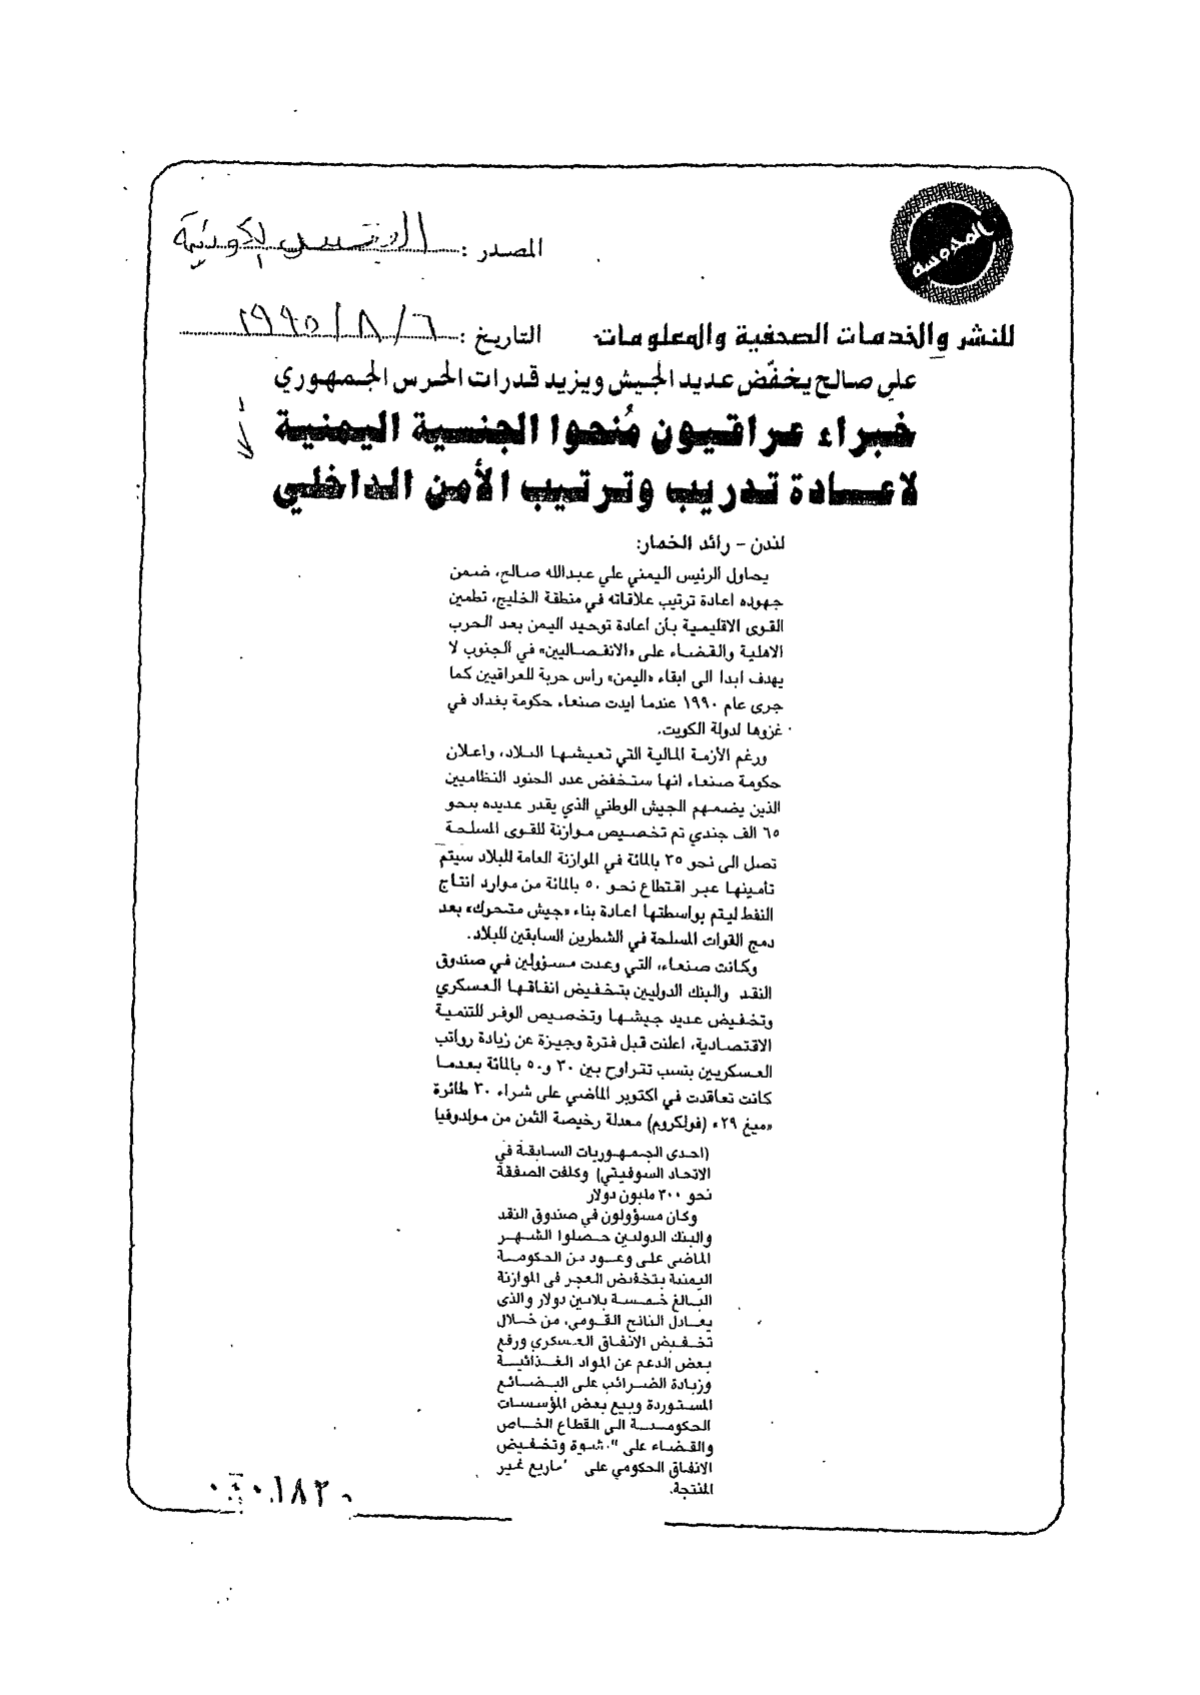 المحروسة
المصدر : القبس الكويتية
للنشر والخدمات الصحفية والمعلومات
التاريخ : ٦ / ٨ / ١٩٩٥
علي صالح يخفّض عديد الجيش ويزيد قدرات الحرس الجمهوري
خبراء عراقيون مُنحوا الجنسية اليمنية
لاعادة تدريب وترتيب الأمن الداخلي
لندن - رائد الخمار:
يحاول الرئيس اليمني علي عبدالله صالح، ضمن
جهوده اعادة ترتيب علاقاته في منطقة الخليج، تطمين
القوى الاقليمية بأن اعادة توحيد اليمن بعد الحرب
الاهلية والقضاء على «الانفصاليين» في الجنوب لا
يهدف ابدا الى ابقاء «اليمن» راس حربة للعراقيين كما
جرى عام ١٩٩٠ عندما ايدت صنعاء حكومة بغداد في
غزوها لدولة الكويت.
ورغم الأزمة المالية التي تعيشها البلاد، واعلان
حكومة صنعاء انها ستخفض عدد الجنود النظاميين
الذين يضمهم الجيش الوطني الذي يقدر عديده بنحو
٦٥ الف جندي تم تخصيص موازنة للقوى المسلحة
تصل الى نحو ٣٥ بالمائة في الموازنة العامة للبلاد سيتم
تأمينها عبر اقتطاع نحو ٥٠ بالمائة من موارد انتاج
النفط ليتم بواسطتها اعادة بناء «جيش متحرك» بعد
دمج القوات المسلحة في الشطرين السابقين للبلاد.
وكانت صنعاء، التي وعدت مسؤولين في صندوق
النقد والبنك الدوليين بتخفيض انفاقها العسكري
وتخفيض عديد جيشها وتخصيص الوفر للتنمية
الاقتصادية، اعلنت قبل فترة وجيزة عن زيادة رواتب
العسكريين بنسب تتراوح بين ٣٠ و٥٠ بالمائة بعدما
كانت تعاقدت في اكتوبر الماضي على شراء ٣٠ طائرة
«ميغ ٢٩» (فولكروم) معدلة رخيصة الثمن من مولدوفيا
(احدى الجمهوريات السابقة في
الاتحاد السوفيتي) وكلفت الصفقة
نحو ٣٠٠ مليون دولار
وكان مسؤولون في صندوق النقد
والبنك الدوليين حصلوا الشهر
الماضي على وعود من الحكومة
اليمنية بتخفيض العجز في الموازنة
البالغ خمسة بلايين دولار والذي
يعادل الناتج القومي، من خلال
تخفيض الانفاق العسكري ورفع
بعض الدعم عن المواد الغذائية
وزيادة الضرائب على البضائع
المستوردة وبيع بعض المؤسسات
الحكومية الى القطاع الخاص
والقضاء على وتخفيض
الانفاق الحكومي على غير
المنتجة.